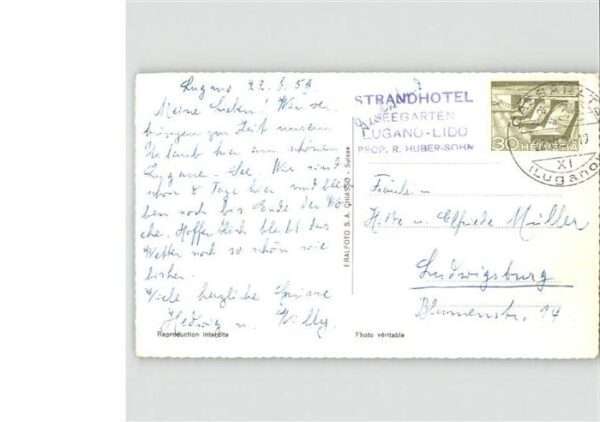 Lugano 22.5.54
Meine Lieben! Wir ver
bringen zur Zeit unseren
Urlaub hier am schönen
Lugano-See. Wir sind
schon 8 Tage hier und blei
ben noch bis Ende der Wo
che. Hoffentlich bleibt das
Wetter noch so schön wie
bisher.
Viele herzliche Grüsse
Hedwig u. Willy.
Reproduction interdite
FRALFOTO S.A. CHIASSO - Suisse
STRANDHOTEL
SEEGARTEN
LUGANO-LIDO
PROP. R. HUBER-SOHN
30 HELVETIA
XI
(LUGANO)
Familie
H. Müller u. Elfriede Müller
Ludwigsburg
Blumenstr. 14
Photo véritable